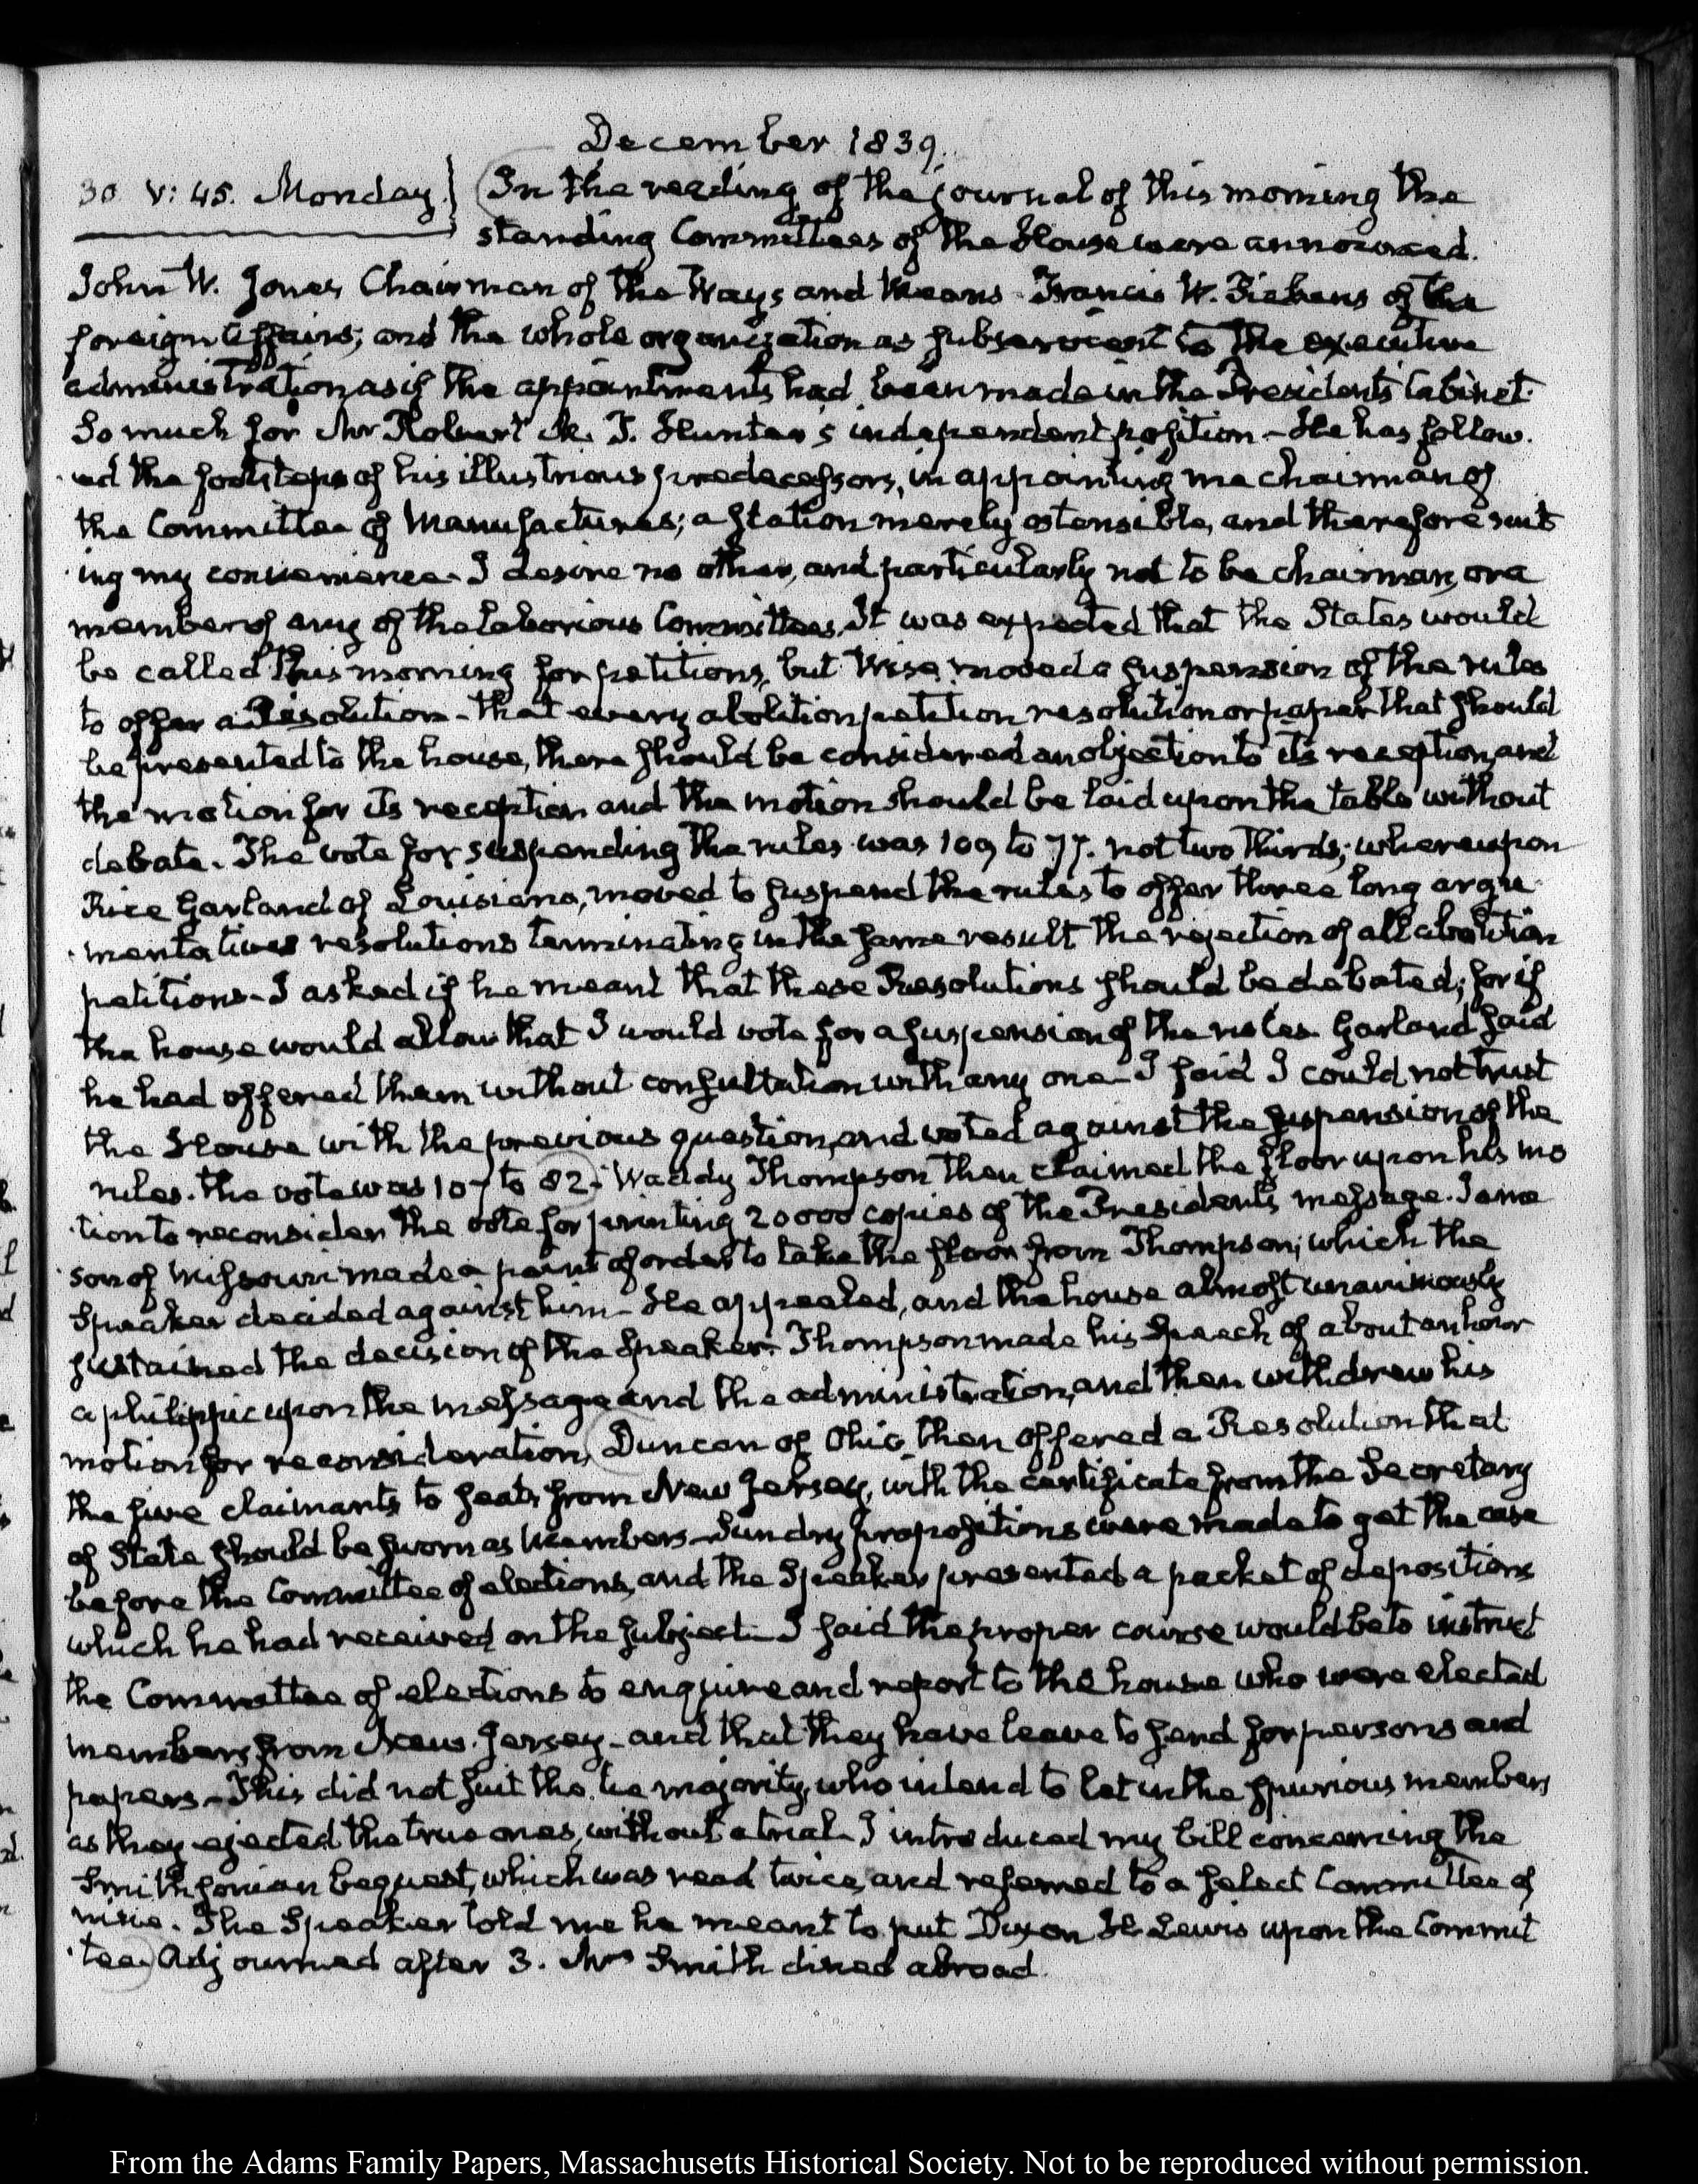 December 1839.
30. V: 45. Monday.} In the reading of the journal of this morning the
standing Committees of the House were announced.
John W. Jones Chairman of the Ways and Means - Francis W. Pickens of the
foreign affairs; and the whole organization as subservient to the executive
administration as if the appointments had been made in the President's Cabinet.
So much for Mr Robert M. T. Hunter's independent position - He has follow-
ed the footsteps of his illustrious predecessors, in appointing me chairman of
the Committee of Manufactures; a station merely ostensible, and therefore suit
ing my convenience - I desire no other, and particularly not to be chairman, or a
member of any of the laborious Committees. It was expected that the States would
be called this morning for petitions, but Wise moved a suspension of the rules
to offer a Resolution - that every abolition petition resolution or paper that should
be presented to the house, there should be considered an objection to its reception, and
the motion for its reception and the motion should be laid upon the table without
debate. The vote for suspending the rules was 109 to 77. not two thirds; whereupon
Rice Garland of Louisiana, moved to suspend the rules to offer three long argu
mentatives resolutions terminating in the same result the rejection of all abolition
petitions - I asked if he meant that these Resolutions should be debated; for if
the house would allow that I would vote for a suspension of the rules. Garland said
he had offered them without consultation with any one - I said I could not trust
the House with the previous question, and voted against the suspension of the
rules. the vote was 107 to 82. Waddy Thompson then claimed the floor upon his mo
tion to reconsider the vote for printing 20000 copies of the President's message. Jame
son of Missouri made a point of order to take the floor from Thompson; which the
Speaker decided against him - He appealed, and the house almost unanimously
sustained the decision of the Speaker. Thompson made his Speech of about an hour
a philippic upon the message and the administration, and then withdrew his
motion for reconsideration, Duncan of Ohio, then offered a Resolution that
the five claimants to seats from New Jersey, with the certificate from the Secretary
of State should be sworn as Members - Sundry propositions were made to get the case
before the Committee of elections, and the Speaker presented a packet of depositions
which he had received on the subject - I said the proper course would be to instruct
the Committee of elections to enquire and report to the house who were elected
members from New Jersey - and that they have leave to send for persons and
papers - This did not suit the majority, who intend to let in the spurious members
as they ejected the true ones, without a trial - I introduced my bill concerning the
Smithsonian bequest, which was read twice, and referred to a select Committee of
nine. The Speaker told me he meant to put Dixon H. Lewis upon the Commit
tee. Adjourned after 3. Mrs Smith dined abroad.
From the Adams Family Papers, Massachusetts Historical Society. Not to be reproduced without permission.